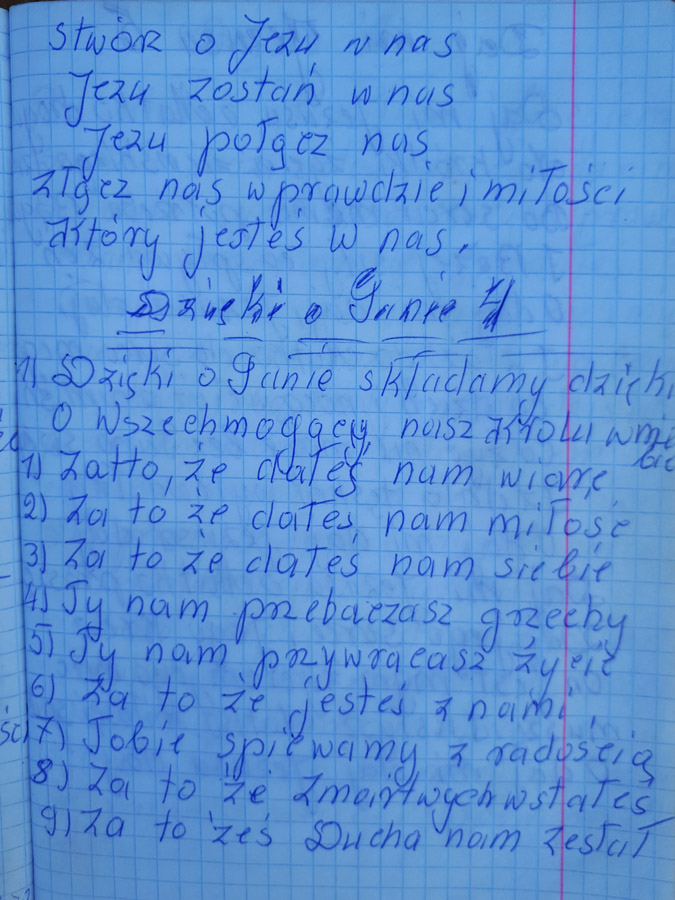 stwórz o Jezu w nas
Jezu zostań w nas
Jezu połącz nas
złącz nas w prawdzie i miłości
który jesteś w nas.
Dzięki o Panie 4
1) Dzięki o Panie składamy dzięki
O Wszechmogący nasz Królu w nie
bie
1) Za to, że dałeś nam wiarę
2) Za to że dałeś nam miłość
3) Za to że dałeś nam siebie
4) Ty nam przebaczasz grzechy
5) Ty nam przywracasz życie
6) Za to że jesteś z nami,
7) Tobie śpiewamy z radością
8) Za to że Zmartwychwstałeś
9) Za to żeś Ducha nam zesłał